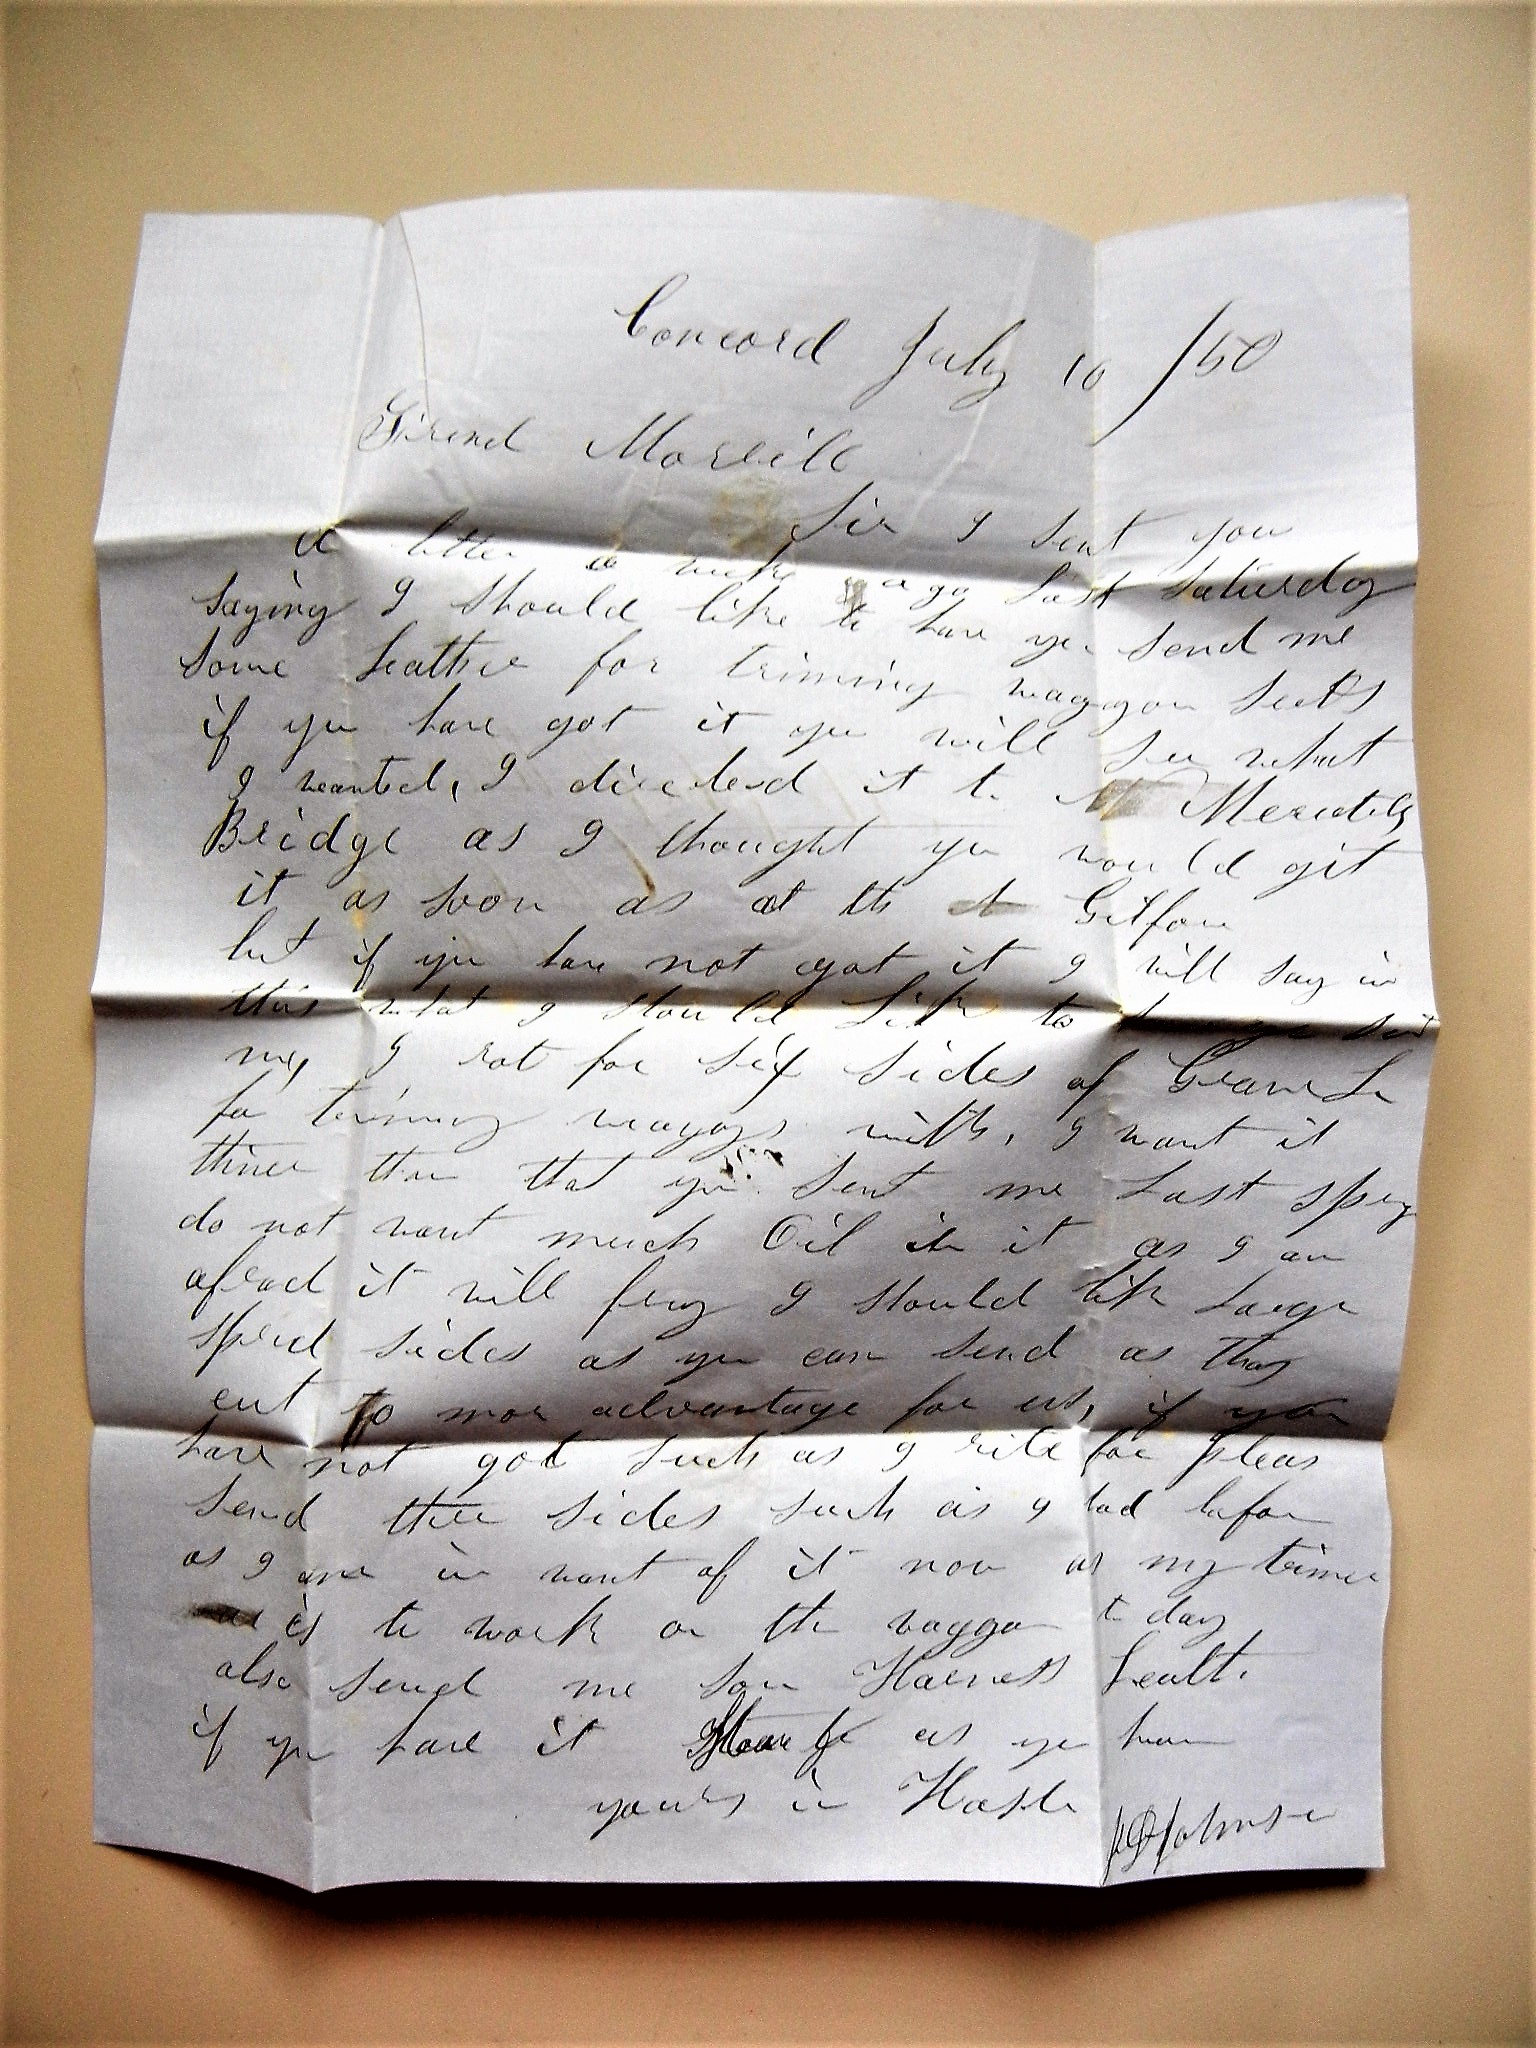 Concord July 10 /50
Friend Morrill
Sir I sent you
a letter a weke ago Last Saturday
saying I should like to have you send me
some Leather for triming waggon seets
if you have got it you will see what
I wanted, I directed it to Meredith
Bridge as I thought you would git
it as soon as at the Gilford
but if you have not got it I will say in
this what I should Like to
me, I rot for six sides of Grain Le
for triming waggons with, I want it
thiner than that you sent me Last spring
do not want much Oil in it as I am
afraid it will fry I should like Large
spred sides as you can send as they
cut to mor advantage for us, if you
have not got such as I rite for pleas
send three sides such as I had before
as I am in want of it now as my trimer
is to work on the waggon to day
also send me some Harness Leather
if you have it as you have
yours in Haste
Johnson